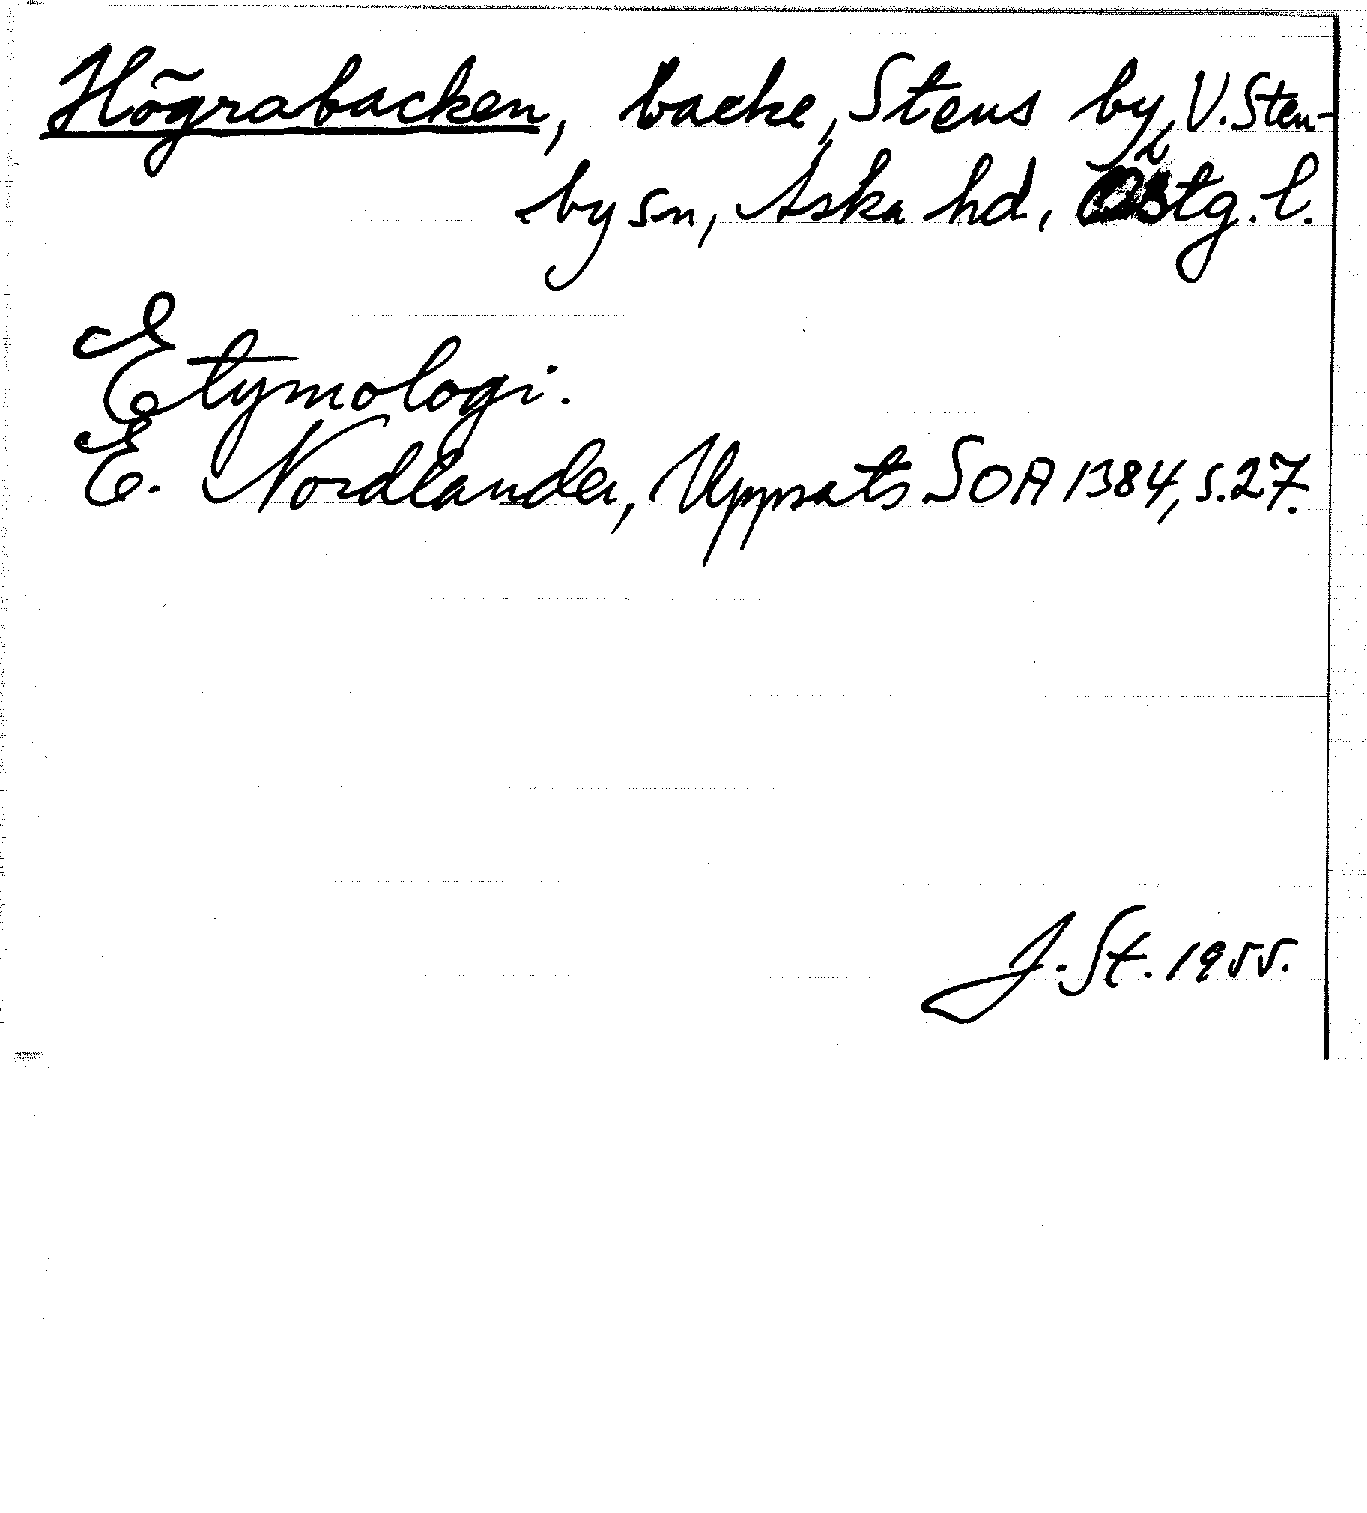 Högrabacken, backe, Stens by, V. Sten-
by sn, Aska hd, Östg. l.
Etymologi.
E. Nordlander, Uppsats SOA 1384, s. 27.
J. St. 1955.